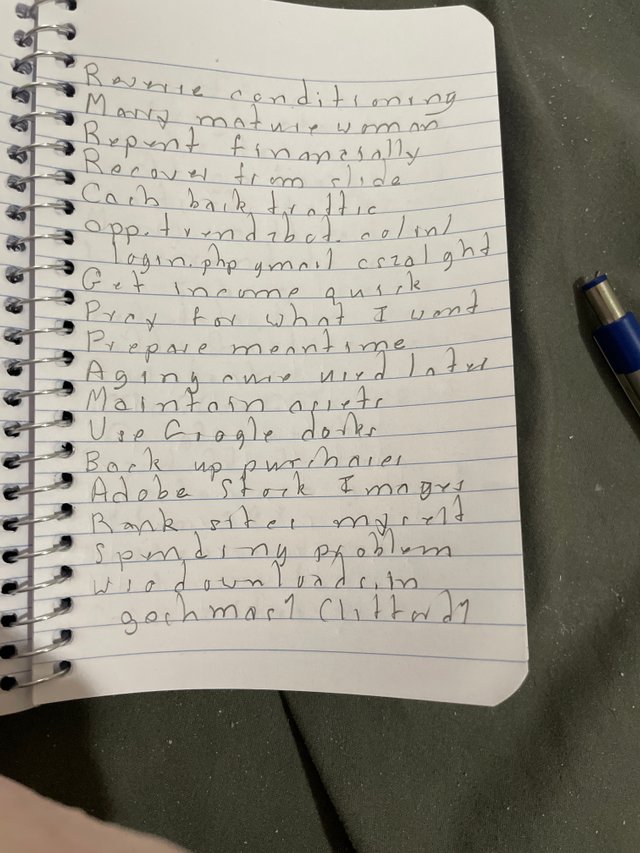 Reverse conditioning
Marry mature woman
Repent financially
Recover from slide
Cash back traffic
login.php gmail
Get income quick
Pray for what I want
Prepare meantime
Aging cure used later
Maintain assets
Use Google dorks
Back up purchases
Adobe Stock Images
Rank sites myself
Spending problem